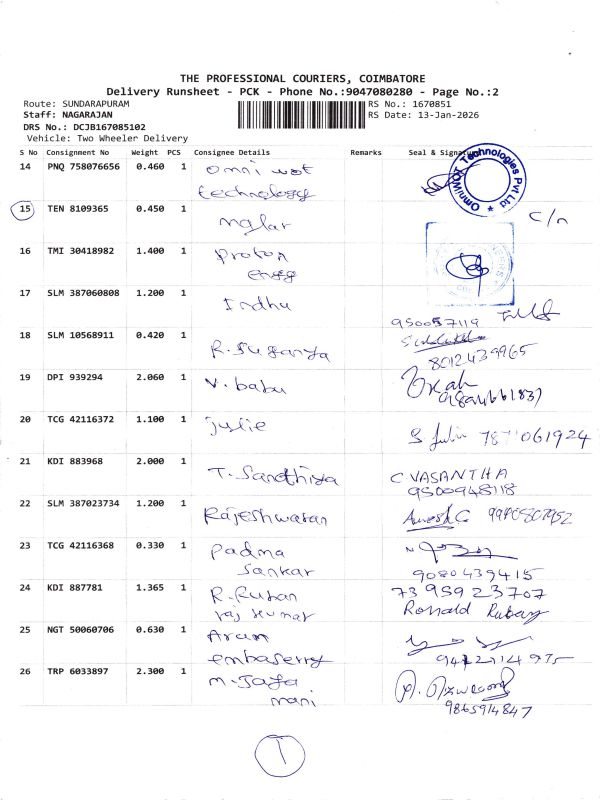 THE PROFESSIONAL COURIERS, COIMBATORE
Delivery Runsheet - PCK - Phone No.:9047080280 - Page No.:2
Route: SUNDARAPURAM
RS No.: 1670851
Staff: NAGARAJAN
RS Date: 13-Jan-2026
DRS No.: DCJB167085102
Vehicle: Two Wheeler Delivery
S No Consignment No Weight PCS Consignee Details Remarks Seal & Signature
14 PNQ 758076656 0.460 1 Omni wot
technology
OmniWOT Technologies Pvt Ltd
15 TEN 8109365 0.450 1 malar C/n
16 TMI 30418982 1.400 1 Proton
engg
17 SLM 387060808 1.200 1 Indhu
950057119
18 SLM 10568911 0.420 1 R. Suganya
8012439965
19 DPI 939294 2.060 1 V. babu
20 TCG 42116372 1.100 1 Julie S Julie 7871061924
21 KDI 883968 2.000 1 T. Sandhiya C VASANTHA
9500948118
22 SLM 387023734 1.200 1 Rajeshwaran
23 TCG 42116368 0.330 1 Padma
Sankar
9080439415
24 KDI 887781 1.365 1 R. Ruban 7395923707
raj kumar Ronald Rubany
25 NGT 50060706 0.630 1 Aram
embaserry
26 TRP 6033897 2.300 1 M. Jaya
mani
9865914847